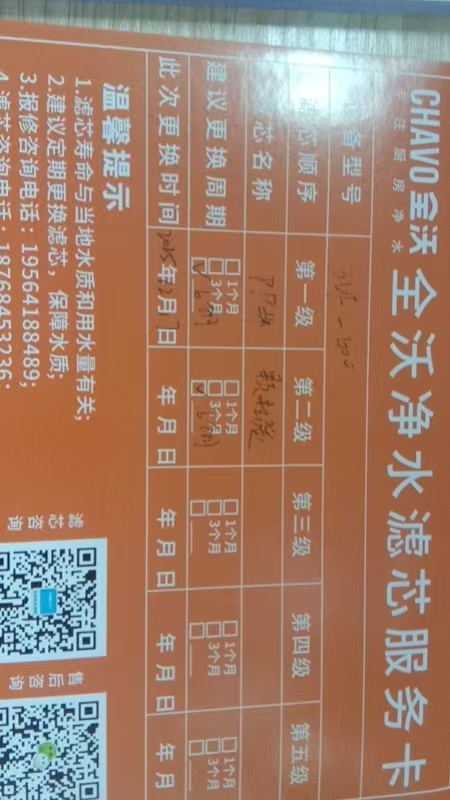 CHAVO全沃
专注厨房净水
全沃净水滤芯服务卡
备型号
滤芯顺序 第一级 第二级 第三级 第四级 第五级
芯名称 PP棉 颗粒炭
建议更换周期
□1个月 □1个月 □1个月 □1个月 □1个月
□3个月 □3个月 □3个月 □3个月 □3个月
6个月 6个月
此次更换时间 年 月 日 年 月 日 年 月 日 年 月 日 年 月
温馨提示
1.滤芯寿命与当地水质和用水量有关;
2.建议定期更换滤芯,保障水质;
3.报修咨询电话:19564188489;
4.滤芯咨询电话:18768453236;
滤芯咨询
售后咨询